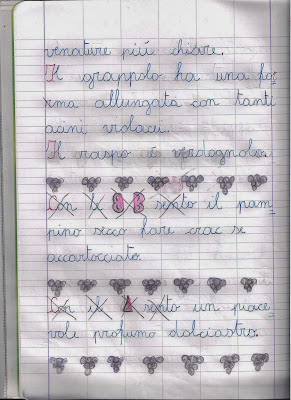 venature più chiare.
Il grappolo ha una fo
rma allungata con tanti
acini violacei.
Il raspo è verdognolo.
Con le sento il pam-
pino secco fare crac se
accartocciato.
Con il sento un piace-
vole profumo dolciastro.